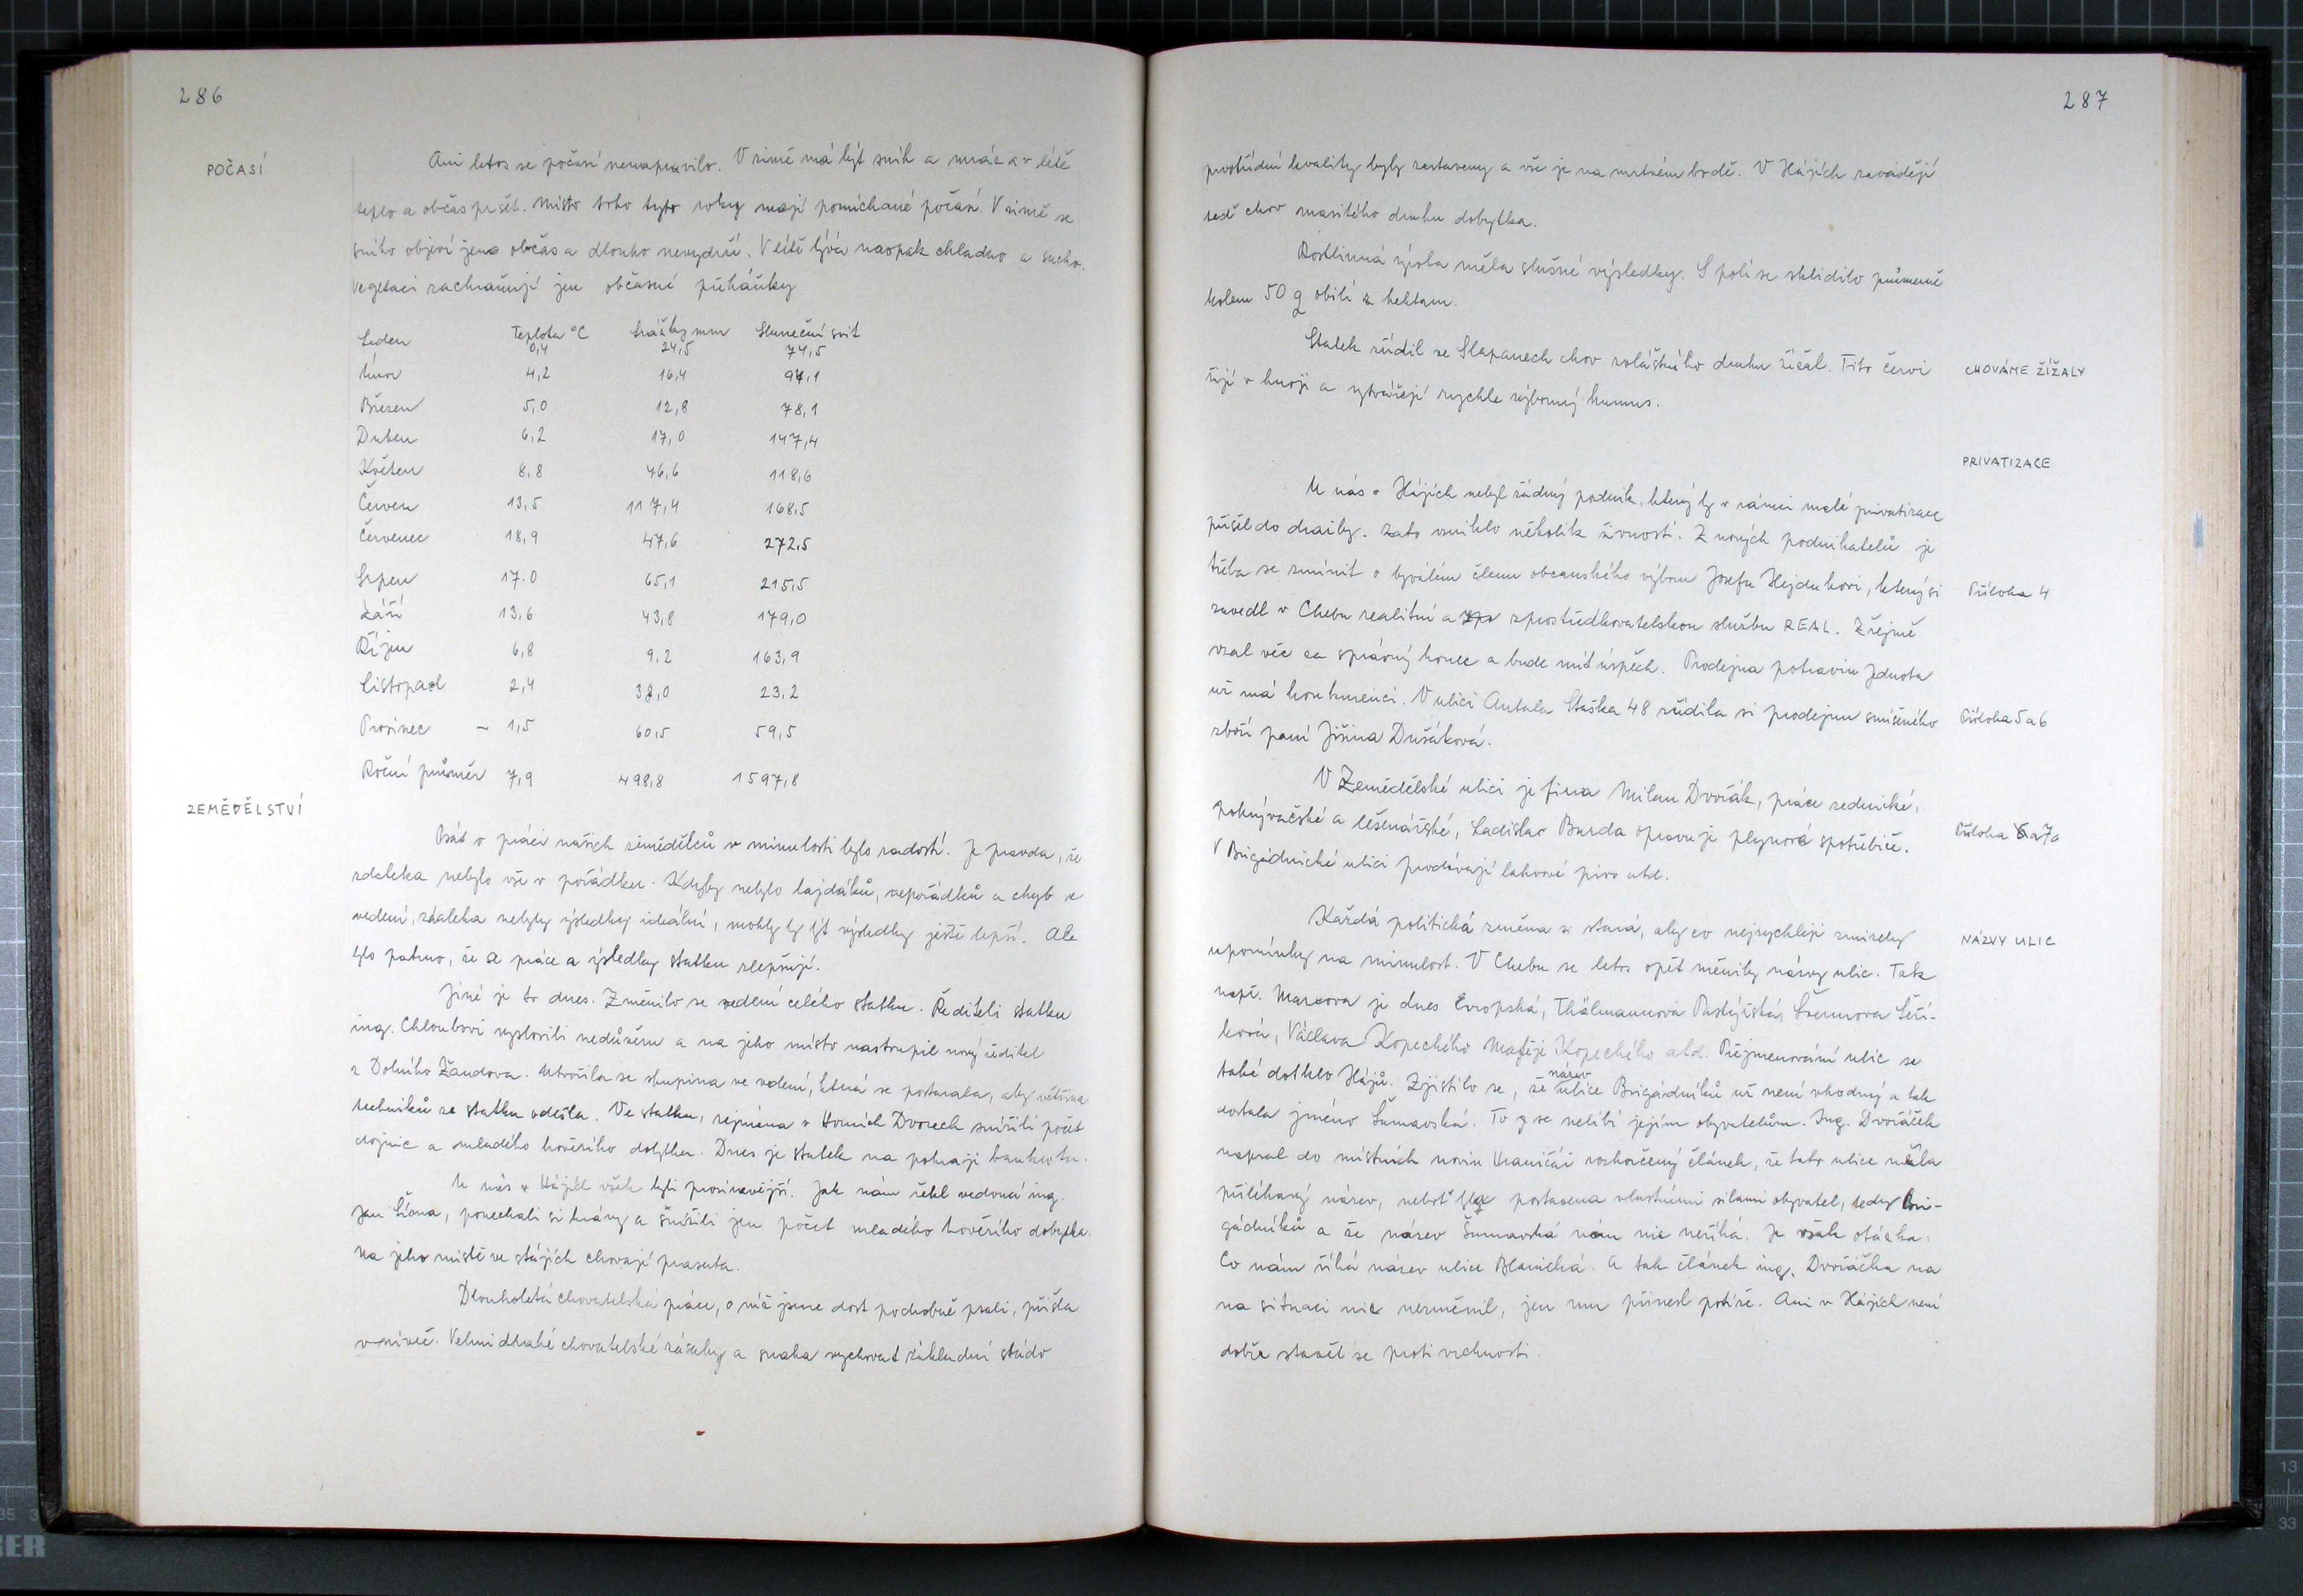 286
POČASÍ
Ani letos se počasí nenapravilo. V zimě má být sníh a mráz a v létě
teplo a občas pršet. Místo toho tyto roky mají pomíchané počasí. V zimě se
sníh objeví jen občas a dlouho nevydrží. V létě bývá naopak chladno a sucho.
Vegetaci zachraňují jen občasné přeháňky
Teplota °C srážky mm Sluneční svit
Leden 0,4 24,5 74,5
Únor 4,2 16,4 94,1
Březen 5,0 12,8 78,1
Duben 6,2 17,0 147,4
Květen 8,8 46,6 118,6
Červen 13,5 117,4 168,5
Červenec 18,9 47,6 272,5
Srpen 17.0 65,1 215,5
Září 13,6 43,8 179,0
Říjen 6,8 9,2 163,9
Listopad 2,4 38,0 23,2
Prosinec - 1,5 60,5 59,5
Roční průměr 7,9 498,8 1597,8
ZEMĚDĚLSTVÍ
Psát o práci našich zemědělců v minulosti bylo radostí. Je pravda, že
zdaleka nebylo vše v pořádku. Kdyby nebylo lajdáků, nepořádků a chyb ve
vedení, zdaleka nebyly výsledky ideální, mohly by být výsledky ještě lepší. Ale
bylo patrno, že se práce a výsledky statku zlepšují.
Jiné je to dnes. Změnilo se vedení celého statku. Řediteli statku
ing. Chloubovi vyslovili nedůvěru a na jeho místo nastoupil nový ředitel
z Dolního Žandova. Utvořila se skupina ve vedení, která se postarala, aby většina
techniků ze statku odešla. Ve statku, zejména v Horních Dvorech snížili počet
dojnic a mladého hovězího dobytka. Dnes je statek na pokraji bankrotu.
U nás v Hájích však byli prozíravější. Jak nám řekl vedoucí ing.
Jan Síma, ponechali si krávy a snížili jen počet mladého hovězího dobytka.
Na jeho místě ve stájích chovají prasata.
Dlouholetá chovatelská práce, o níž jsme dost podrobně psali, přišla
v niveč. Velmi drahé chovatelské zásahy a snaha vychovat základní stádo
287
prostřední kvality byly zastaveny a vše je na mrtvém bodě. V Hájích zavádějí
teď chov masitého druhu dobytka.
Rostlinná výroba měla slušné výsledky. S polí se sklidilo průměrně
kolem 50 q obilí z hektaru.
Statek zřídil ve Slapanech chov zvláštního druhu žížal. Tito červi
CHOVÁME ŽÍŽALY
žijí v hnoji a vytvářejí rychle výborný humus.
PRIVATIZACE
U nás v Hájích nebyl žádný podnik, který by v rámci malé privatizace
přišel do dražby. Zato vzniklo několik živností. Z nových podnikatelů je
třeba se zmínit o bývalém členu občanského výboru Josefu Hejdukovi, který si
Příloha 4
zavedl v Chebu realitní a zprostředkovatelskou službu REAL. Zřejmě
vzal věc za správný konec a bude mít úspěch. Prodejna potravin Jednota
už má konkurenci. V ulici Antala Staška 48 zřídila si prodejnu smíšeného
Příloha 5 a 6
zboží paní Jiřina Dušáková.
V Zemědělské ulici je firma Milan Dvořák, práce zednické,
pokrývačské a lešenářské, Ladislav Burda opravuje plynové spotřebiče.
Příloha 6a7a
V Brigádnické ulici prodávají lahvové pivo atd.
Každá politická změna se stará, aby co nejrychleji zmizely
NÁZVY ULIC
upomínky na minulost. V Chebu se letos opět měnily názvy ulic. Tak
např. Marxova je dnes Evropská, Thälmannova Pastýřská, Švermova Šeří-
ková, Václava Kopeckého Matěje Kopeckého atd. Přejmenování ulic se
také dotklo Hájů. Zjistilo se, že název ulice Brigádníků už není vhodný a tak
dostala jméno Šumavská. To se nelíbí jejím obyvatelům. Ing. Dvořáček
napsal do místních novin Hraničář rozhořčený článek, že tato ulice měla
přiléhavý název, neboť byla postavena vlastními silami obyvatel, tedy bri-
gádníků a že název Šumavská nám nic neříká. Je však otázka:
Co nám říká název ulice Blanická. A tak článek ing. Dvořáčka na
na situaci nic nezměnil, jen mu přinesl potíže. Ani v Hájích není
dobře stavět se proti vrchnosti.